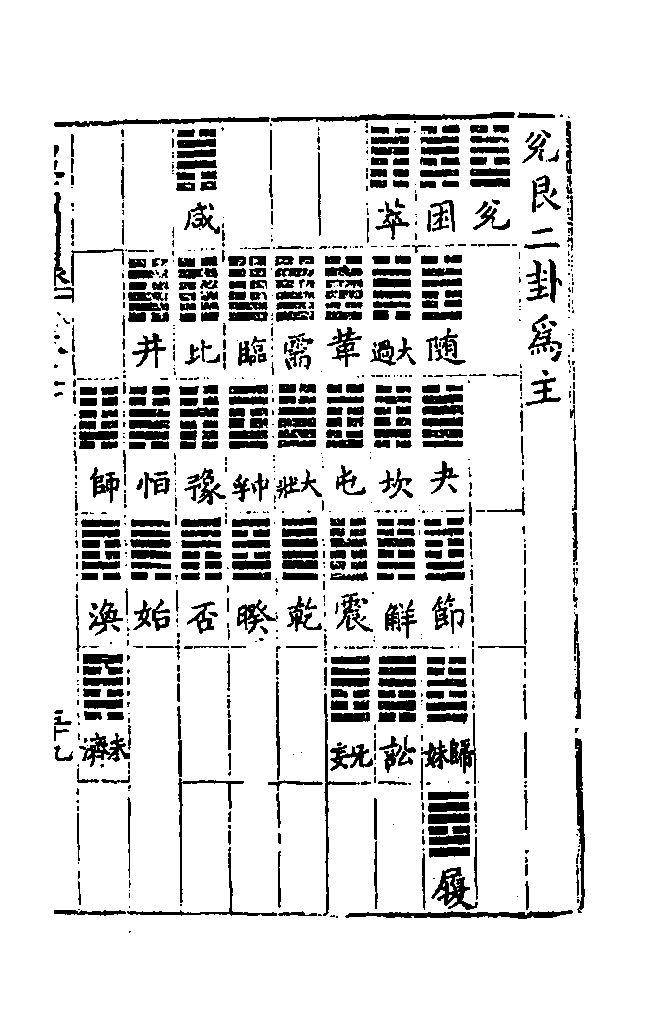 兌艮二卦爲主
兌 困 萃 咸
随 大過 革 需 臨 比 井
夬 坎 屯 大壯 中孚 豫 恒 師
節 解 震 乾 睽 否 姤 渙
歸妹 訟 无妄 未濟
履